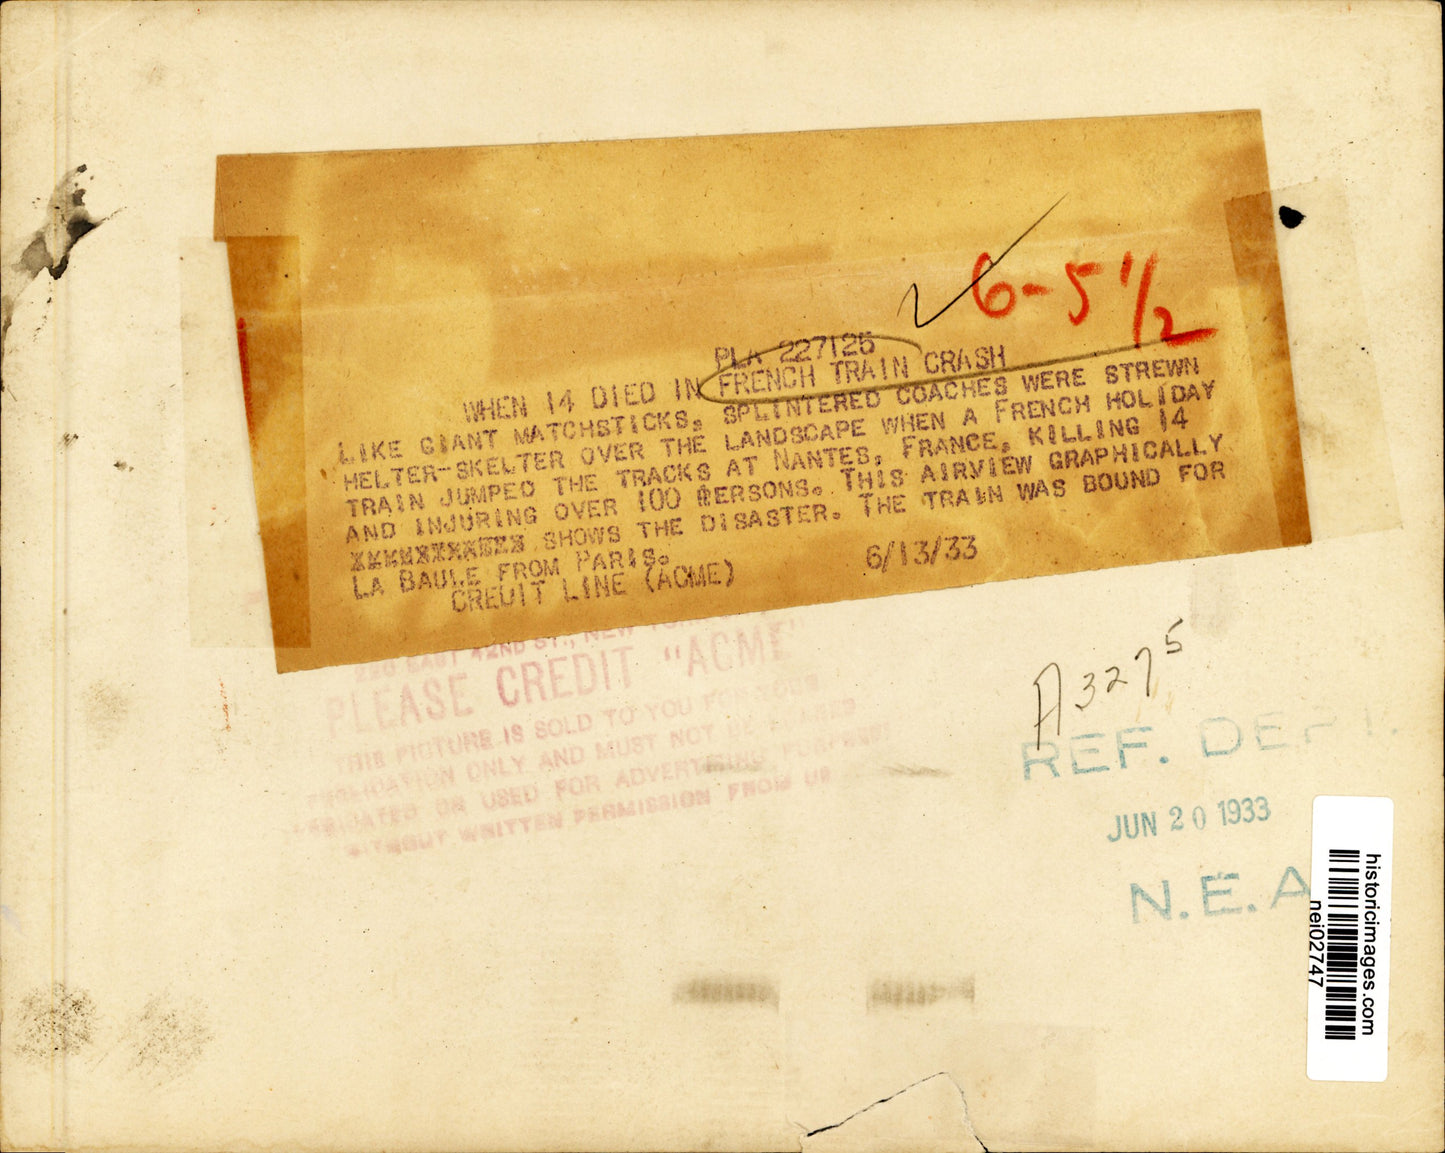 6-5 1/2
PLA 227125
WHEN 14 DIED IN FRENCH TRAIN CRASH
LIKE GIANT MATCHSTICKS, SPLINTERED COACHES WERE STREWN
HELTER-SKELTER OVER THE LANDSCAPE WHEN A FRENCH HOLIDAY
TRAIN JUMPED THE TRACKS AT NANTES, FRANCE, KILLING 14
AND INJURING OVER 100 PERSONS. THIS AIRVIEW GRAPHICALLY
SHOWS THE DISASTER. THE TRAIN WAS BOUND FOR
LA BAULE FROM PARIS.
CREDIT LINE (ACME) 6/13/33
220 EAST 42ND ST., NEW YORK
PLEASE CREDIT "ACME"
THIS PICTURE IS SOLD TO YOU FOR YOUR
PUBLICATION ONLY AND MUST NOT BE LOANED
OR USED FOR ADVERTISING PURPOSES
WITHOUT WRITTEN PERMISSION FROM US
A3275
REF. DEPT.
JUN 20 1933
N.E.A
historicimages.com
nei02747